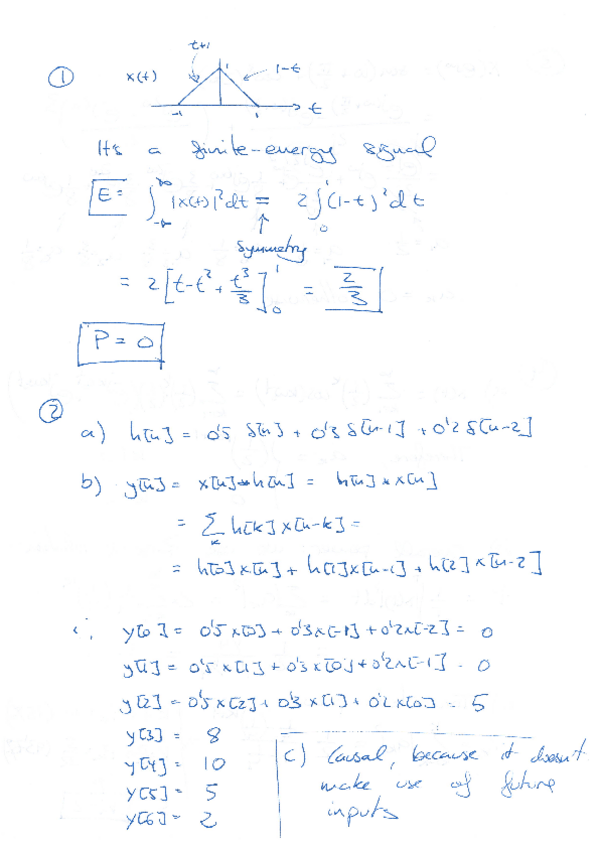 ①
x(t)
t+1
1
1-t
-1
1
t
It's a finite-energy signal
E = ∫_{-∞}^{∞} |x(t)|² dt = 2 ∫_0^1 (1-t)² dt
↑
Symmetry
= 2 [t - t² + t³/3]_0^1 = 2/3
P = 0
②
a) h[n] = 0'5 δ[n] + 0'3 δ[n-1] + 0'2 δ[n-2]
b) y[n] = x[n]*h[n] = h[n]*x[n]
= Σ_k h[k] x[n-k] =
= h[0]x[n] + h[1]x[n-1] + h[2]x[n-2]
y[0] = 0'5 x[0] + 0'3x[-1] + 0'2x[-2] = 0
y[1] = 0'5 x[1] + 0'3 x[0] + 0'2x[-1] = 0
y[2] = 0'5x[2] + 0'3 x[1] + 0'2 x[0] = 5
y[3] = 8
y[4] = 10
y[5] = 5
y[6] = 2
c) Causal, because it doesn't
make use of future
inputs